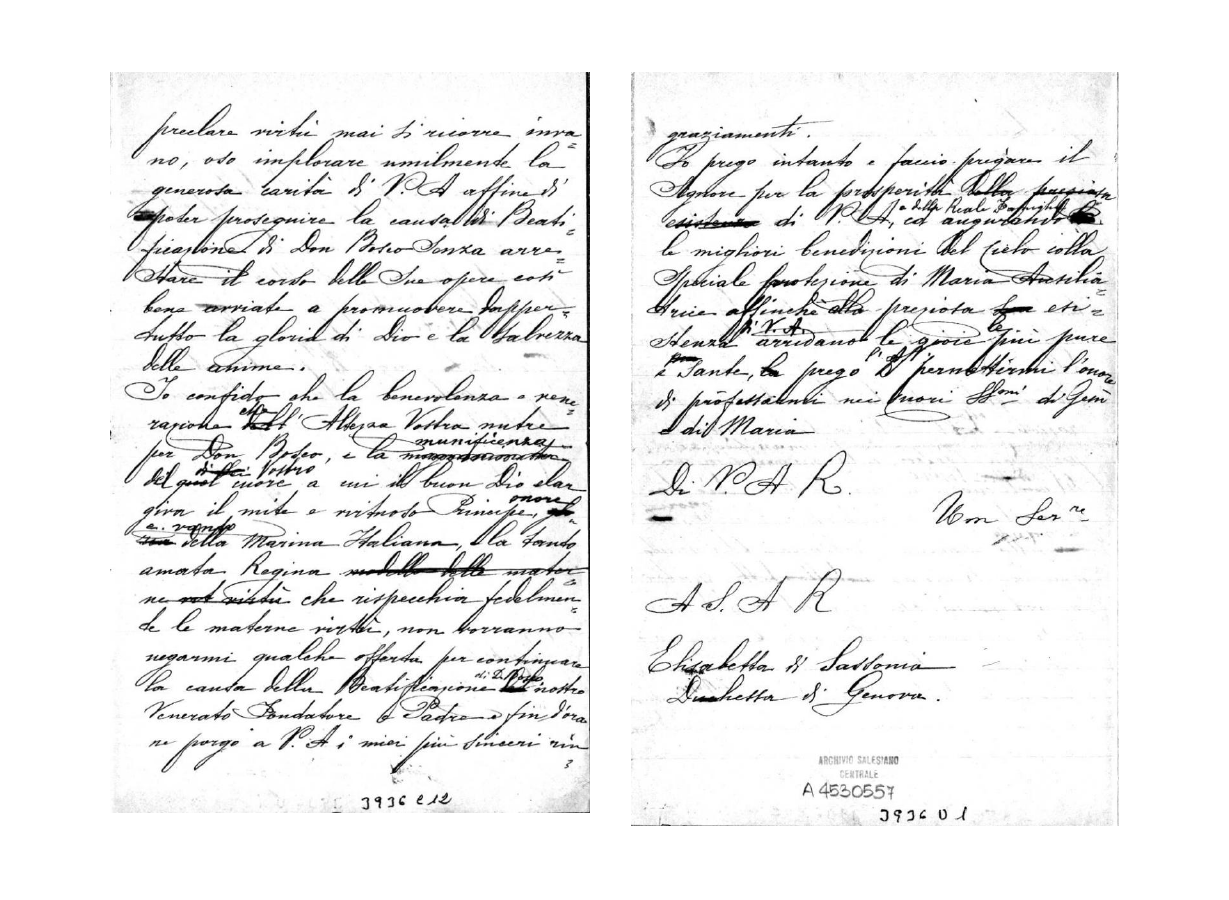 preclare virtù mai si ricorre inva=
no, oso implorare umilmente la
generosa carità di V. A affine di
poter proseguire la causa di Beati=
ficazione di Don Bosco Senza arre=
Stare il corso delle Sue opere così
bene avviate a promuovere dapper=
tutto la gloria di Dio e la Salvezza
delle anime.
Io confido che la benevolenza e vene=
che
razione dell' Altezza Vostra nutre
munificenza
per Don Bosco, e la
Vostro
del quel cuore a cui il buon Dio elar
giva il mite e virtuoso Principe,
onore
e vanto
della Marina Italiana, e la tanto
amata Regina modello delle mater=
ne virtù che rispecchia fedelmen=
te le materne virtù, non vorranno
negarmi qualche offerta per continuare
di D. Bosco
la causa della Beatificazione nostro
Venerato Fondatore e Padre e fin d'ora
ne porgo a V. A i miei più sinceri rin
=
3936 E 12
graziamenti.
Io prego intanto e faccio pregare il
Signore per la prosperità della preziosa
e della Reale Famiglia
esistenza di V. R. A, ed augurando
le migliori benedizioni del Cielo colla
Speciale protezione di Maria Ausilia=
trice affinchè alla preziosa Sua esi=
di V. A.
le
stenza arridano le gioie più pure
e Sante, la prego permettirmi l'onore
di professarmi nei Cuori SS.mi di Gesù
e di Maria
Di V. A R.
Um Ser re
A S. A R
Elisabetta di Sassonia
Duchessa di Genova.
ARCHIVIO SALESIANO
CENTRALE
A 4530557
3936 D 1